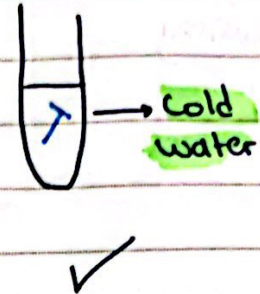 T
cold
water